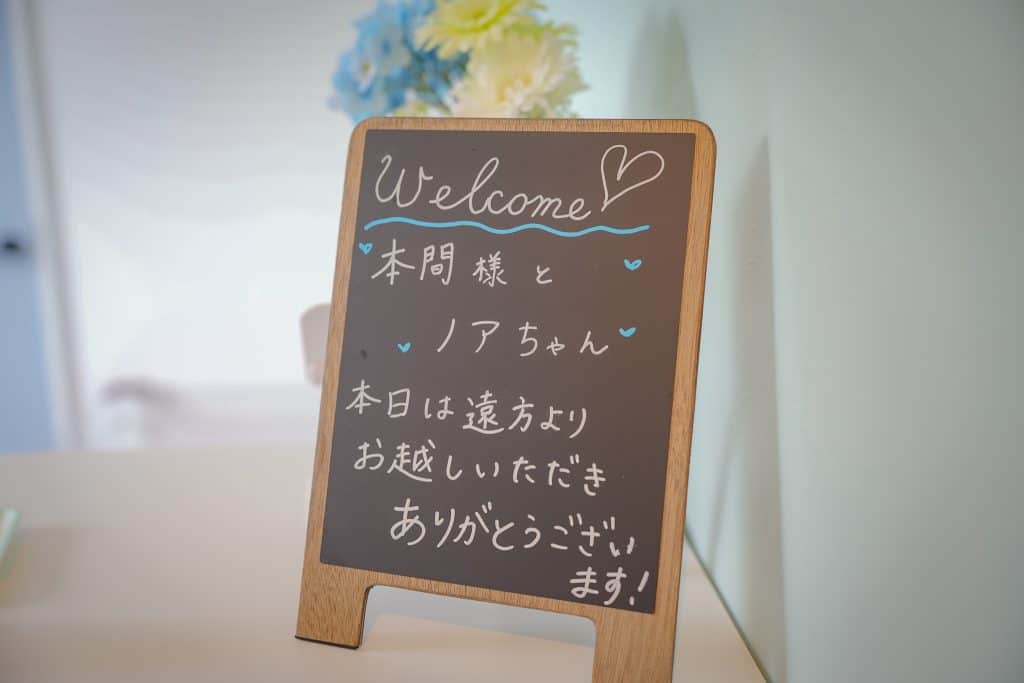 Welcome
本間様と
ノアちゃん
本日は遠方より
お越しいただき
ありがとうござい
ます!